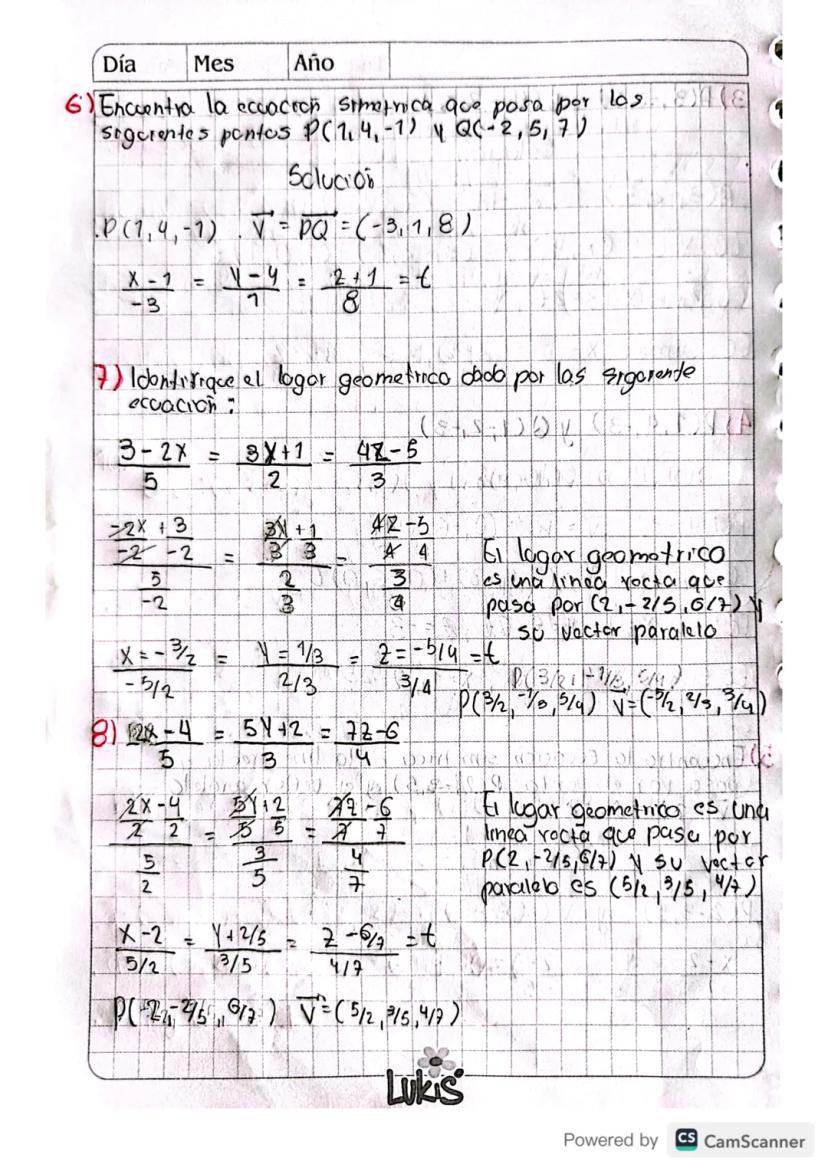 Día Mes Año
6) Encuentra la ecuación simetrica que pasa por los
siguientes puntos P(1, 4, -1) y Q(-2, 5, 7)
Solución
.P(1, 4, -1) . V = PQ = (-3, 1, 8)
x - 1 / -3 = y - 4 / 1 = z + 1 / 8 = t
7) Identifique el lugar geometrico dado por las siguiente
ecuación :
3 - 2x / 5 = 3y + 1 / 2 = 4z - 5 / 3
-2x/-2 + 3/-2 / 5/-2 = 3y/3 + 1/3 / 2/3 = 4z/4 - 5/4 / 3/4
El lugar geometrico
es una linea recta que
pasa por (2, -2/5, 6/7) y
su vector paralelo
x = -3/2 / -5/2 = y = 1/3 / 2/3 = z = -5/4 / 3/4 = t
P(3/2, -1/3, 5/4) V = (-5/2, 2/3, 3/4)
8) 2x - 4 / 5 = 5y + 2 / 3 = 7z - 6 / 4
2x/2 - 4/2 / 5/2 = 5y/5 + 2/5 / 3/5 = 7z/7 - 6/7 / 4/7
El lugar geometrico es una
linea recta que pasa por
P(2, -2/5, 6/7) y su vector
paralelo es (5/2, 3/5, 4/7)
x - 2 / 5/2 = y + 2/5 / 3/5 = z - 6/7 / 4/7 = t
P(2, -2/5, 6/7) V = (5/2, 3/5, 4/7)
Lukis
Powered by CS CamScanner